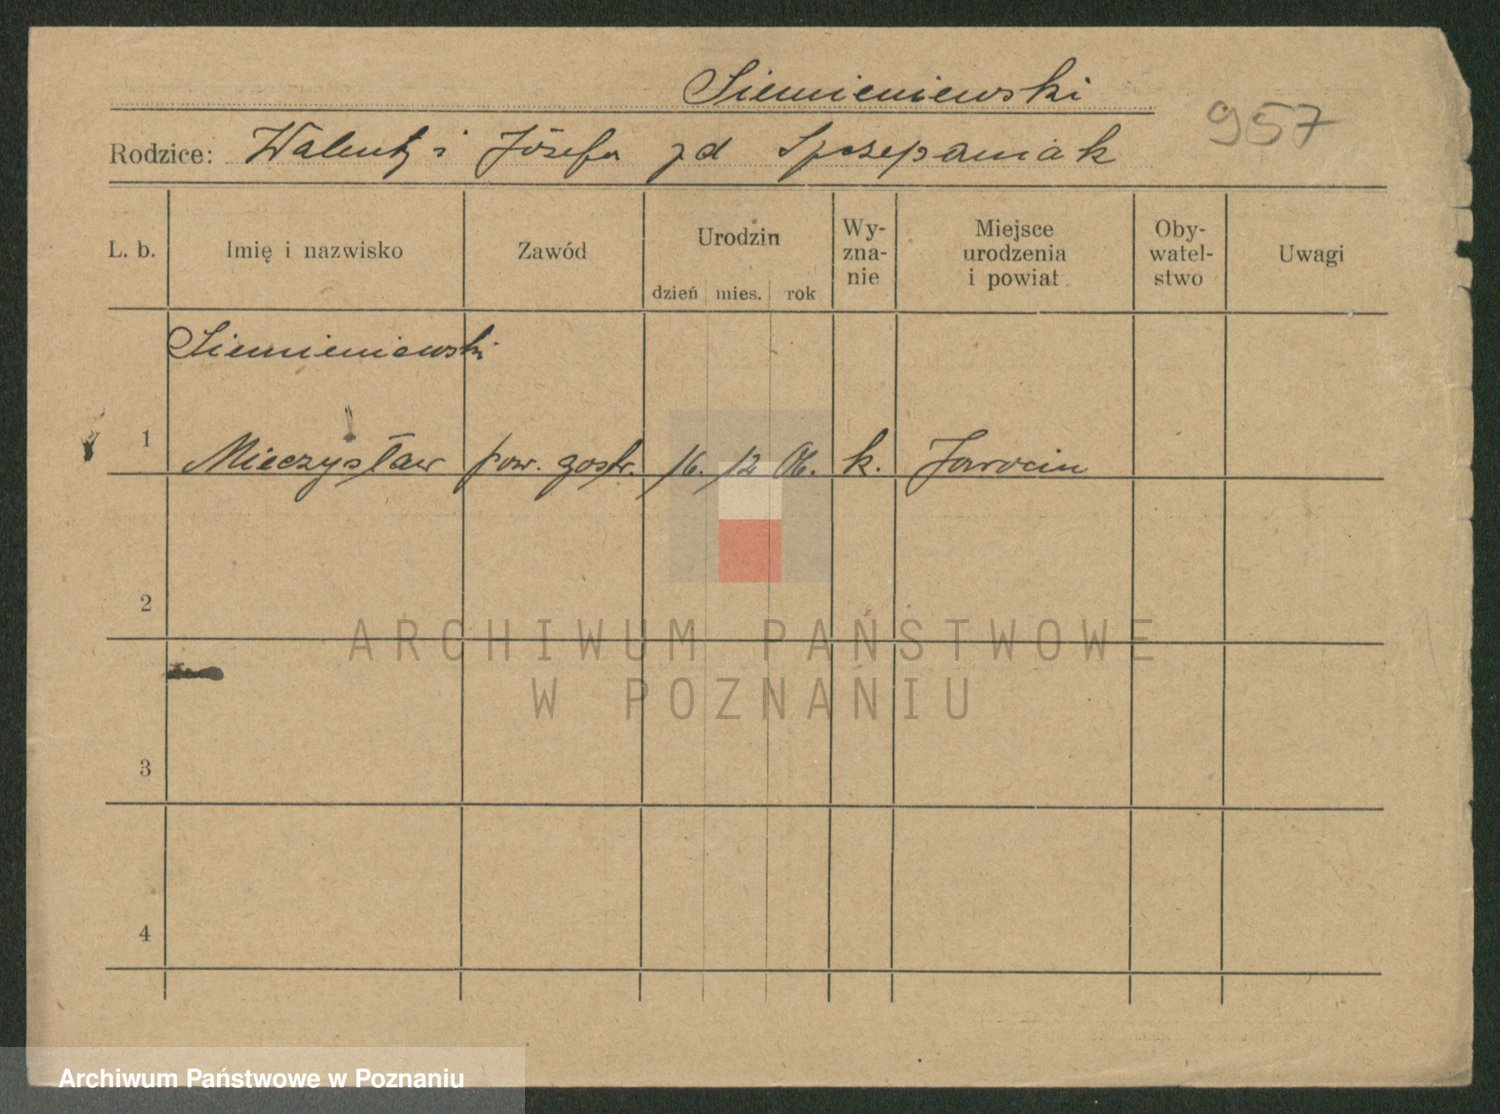 Siemieniewski
957
Rodzice: Walenty i Józefa zd Szczepaniak
L. b. Imię i nazwisko Zawód Urodzin dzień mies. rok Wy-zna-nie Miejsce urodzenia i powiat Oby-watel-stwo Uwagi
Siemieniewski
1 Mieczysław pow. gostr. 16. 12 06. k. Jarocin
2
ARCHIWUM PAŃSTWOWE
W POZNANIU
3
4
Archiwum Państwowe w Poznaniu